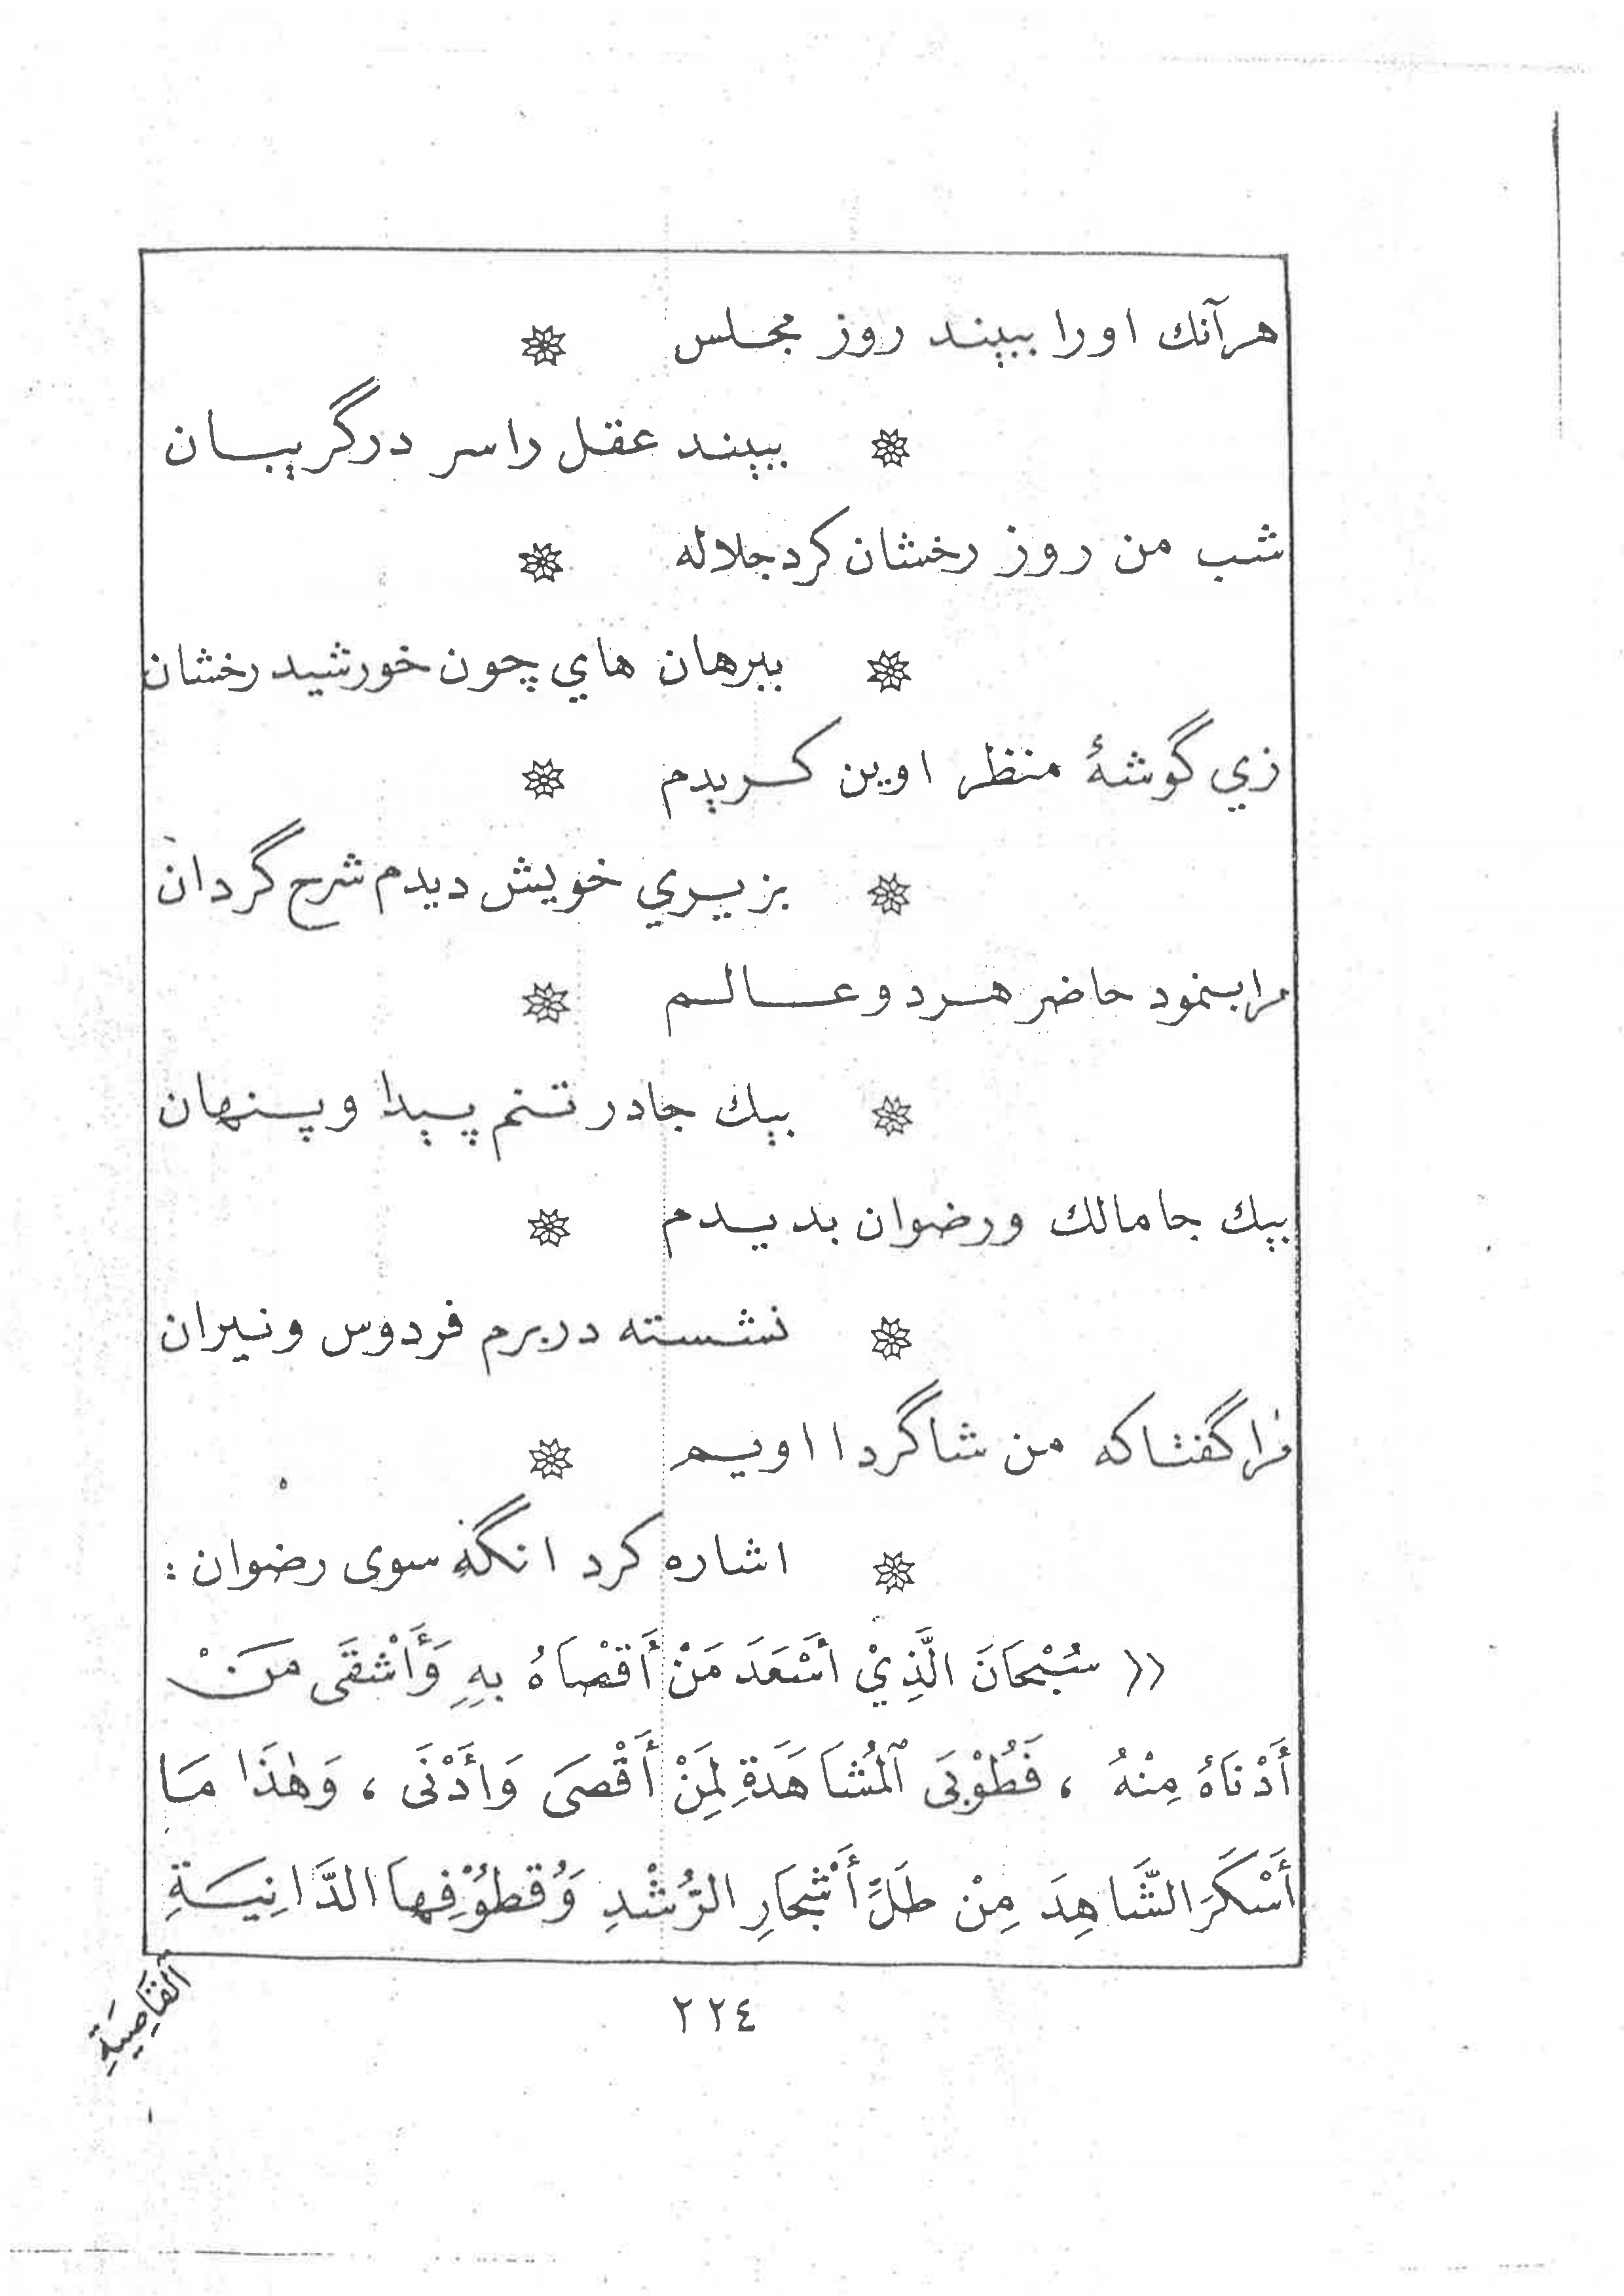 هرآنك اورا ببيند روز مجلس
ببيند عقل راسر درگريبان
شب من روز رخشان كردجلاله
ببرهان هاي چون خورشيد رخشان
زي گوشهٔ منظر اوين كريدم
بزيري خويش ديدم شرح گردان
مرابنمود حاضر هردوعالم
بيك جادر تنم پيدا وپنهان
بيك جامالك ورضوان بديدم
نشسته دربرم فردوس ونيران
فراگفتاكه من شاگردااويم
اشاره كرد انگه سوى رضوان :
(( سُبْحَانَ الَّذِيْ أَسْعَدَ مَنْ أَقْصَاهُ بِهِ وَأَشْقَى مَنْ
أَدْنَاهُ مِنْهُ ، فَطُوْبَى ٱلْمُشَاهَدَةِ لِمَنْ أَقْصَى وَأَدْنَى ، وَهٰذَا مَا
أَسْكَرَ الشَّاهِدَ مِنْ طَلِّ أَشْجَارِ الرُّشْدِ وَقُطُوْفِهَا الدَّانِيَةِ
٢٢٤
القَاصِيَةِ